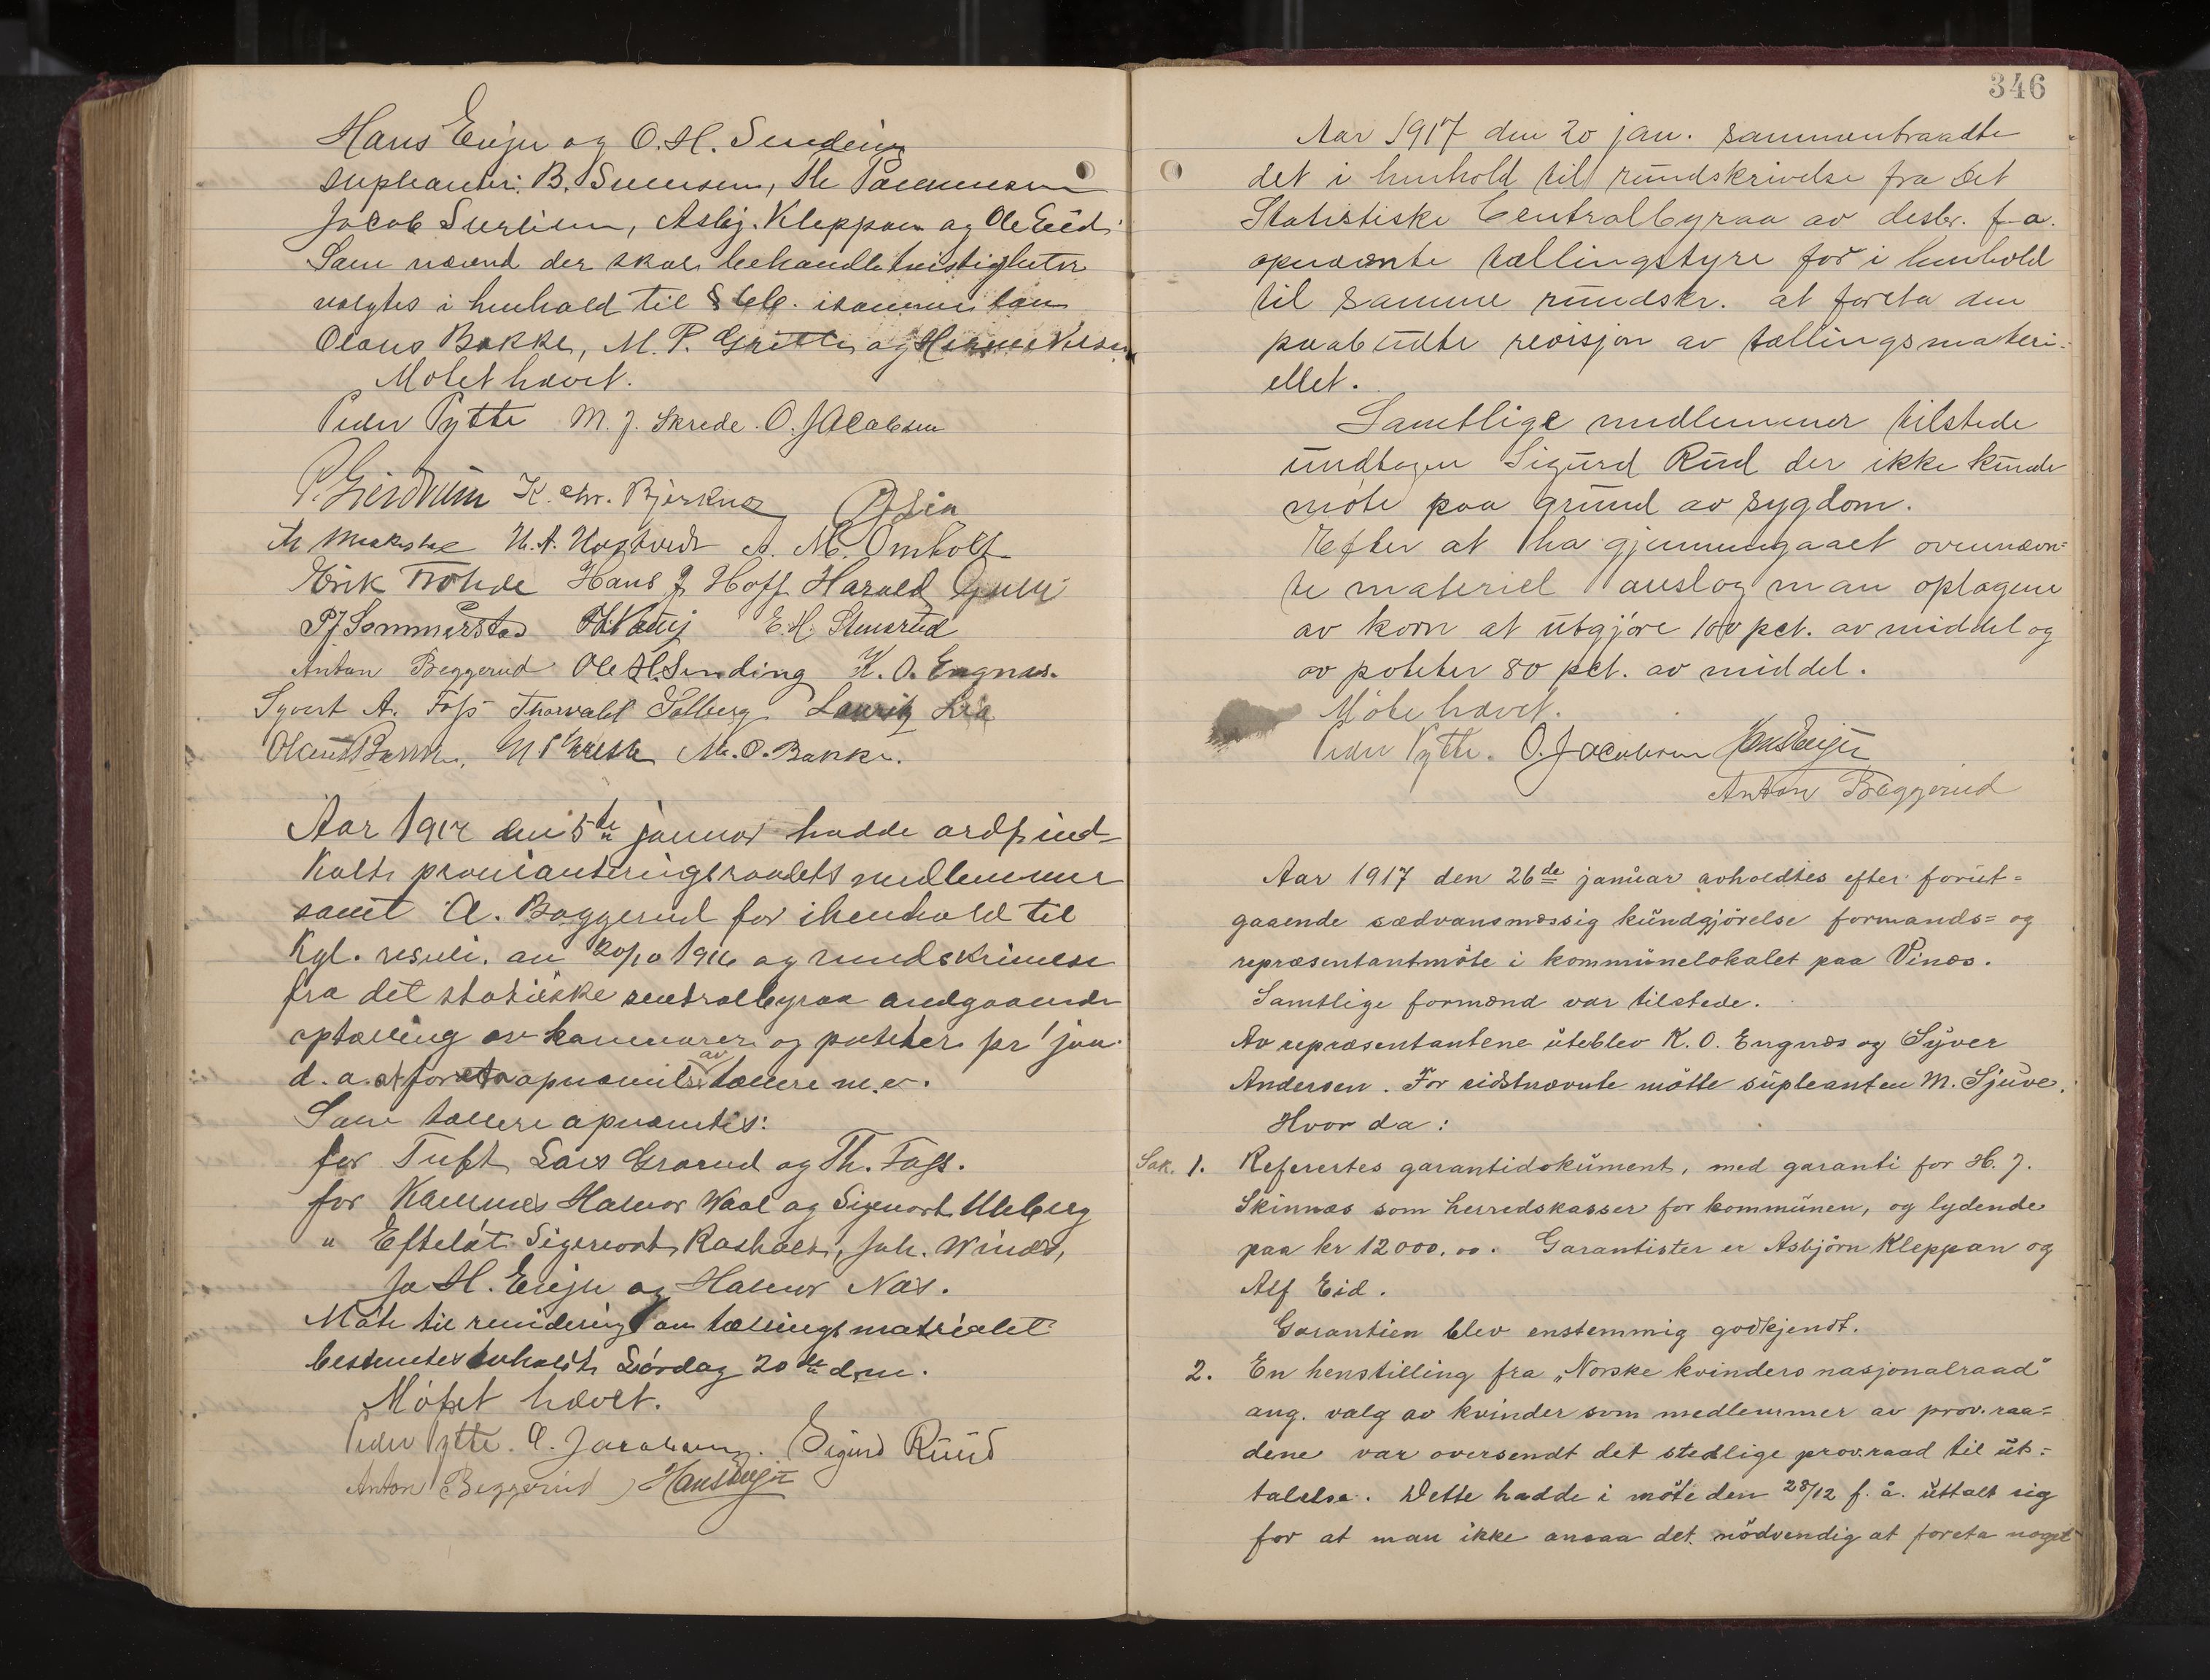 Hans Enjer og O. H. Sending
supleanter: B. Svensen, Th
Jacob, Asbj. Kleppan og Ole Eid.
Som nævnd der skal behandle tvistigheter
valgtes i henhold til § i samme lov
Olaus Bakke, M. P. og
Møtet hævet.
Peder Pytte M. J. Skrede. O. Jacobsen
K. Chr. Bjerknes
H. A. A. M. Omholt
Erik Hans J. Hoff Harald
P J Sommerstad E. H. Stensrud
Anton Beggerud Ole H. Sending K. O. Engnæs.
Syvert A. Foss Thorvald Solberg Lauritz Lia
M. O. Bakke.
Aar 1917 den 5te januar hadde ordf. ind-
kalt provianteringsraadets medlemmer
samt A. Beggerud for i henhold til
Kgl. resol. av 20/10 1916 og rundskrivelse
fra det statistiske centralbyraa angaaende
optælling av kornvarer og poteter pr 1 jan.
d. a. at foreta opnævnelse av tællere m. v.
Som tællere opnævntes:
for Tuft, Lars Grorud og Th. Foss.
for Komnes Halvor Waal og Sigvart Uleberg
" Efteløt Sigvart Rasholt, Joh. Winæs,
Jo H. Enjer og Halvor Næs.
Møte til revidering av tællingsmatrialet
bestemtes avholdt Lørdag 20de dm.
Møtet hævet.
Peder Pytte. O. Jacobsen. Sigurd Ruud
Anton Beggerud, Hans Enjer
346
Aar 1917 den 20 jan. sammentraadte
det i henhold til rundskrivelse fra det
Statistiske Centralbyraa av desbr. f. a.
opnævnte tællingstyre for i henhold
til samme rundskr. at foreta den
paabudte revisjon av tællingsmateri-
ellet.
Samtlige medlemmer tilstede
undtagen Sigurd Rud der ikke kunde
møte paa grund av sygdom.
Efter at ha gjennemgaaet ovennævn=
te materiel anslog man optagene
av korn at utgjøre 100 pct. av middel og
av poteter 80 pct. av middel.
Møte hævet.
Peder Pytte. O. Jacobsen Hans Enjer
Anton Beggerud
Aar 1917 den 26de januar avholdtes efter forut=
gaaende sædvansmæssig kundgjørelse formands= og
repræsentantmøte i kommunelokalet paa Vinæs.
Samtlige formænd var tilstede.
Av repræsentantene uteblev K. O. Engnæs og Syver
Andersen. For sidstnævnte møtte supleanten M. Sjuve.
Hvor da:
Sak. 1. Refertes garantidokument, med garanti for H. J.
Skinnæs som herredskasser for kommunen, og lydende
paa kr 12000,00. Garantister er Asbjørn Kleppan og
Alf Eid.
Garantien blev enstemmig godkjendt.
2. En henstilling fra „Norske kvinders nasjonalraad"
ang. valg av kvinder som medlemmer av prov.raa=
dene var oversendt det stedlige prov.raad til ut=
talelse. Dette hadde i møte den 28/12 f. å. uttalt sig
for at man ikke ansaa det nødvendig at foreta noget